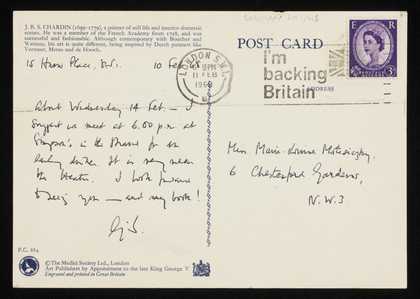 J. B. S. CHARDIN (1699-1779), a painter of still life and interior domestic
scenes. He was a member of the French Academy from 1728, and was
successful and fashionable. Although contemporary with Boucher and
Watteau, his art is quite different, being inspired by Dutch painters like
Vermeer, Metsu and de Hooch.
15 Hans Place, S.W.1. 10 Feb 68
About Wednesday 14 Feb — I
suggest we meet at 6.00 p.m. at
Simpson's in the Strand for an
early dinner. It is very near
the theatre. I look forward
to seeing you — and my book!
P.C. 88a
© The Medici Society Ltd., London
Art Publishers by Appointment to the late King George V
Engraved and printed in Great Britain
POST CARD
ADDRESS
LONDON S.W.1.
PM
11 FEB
1968
I'm
backing
Britain
E R
3D
Miss Marie-Louise
6 Chesterford Gardens,
N.W.3